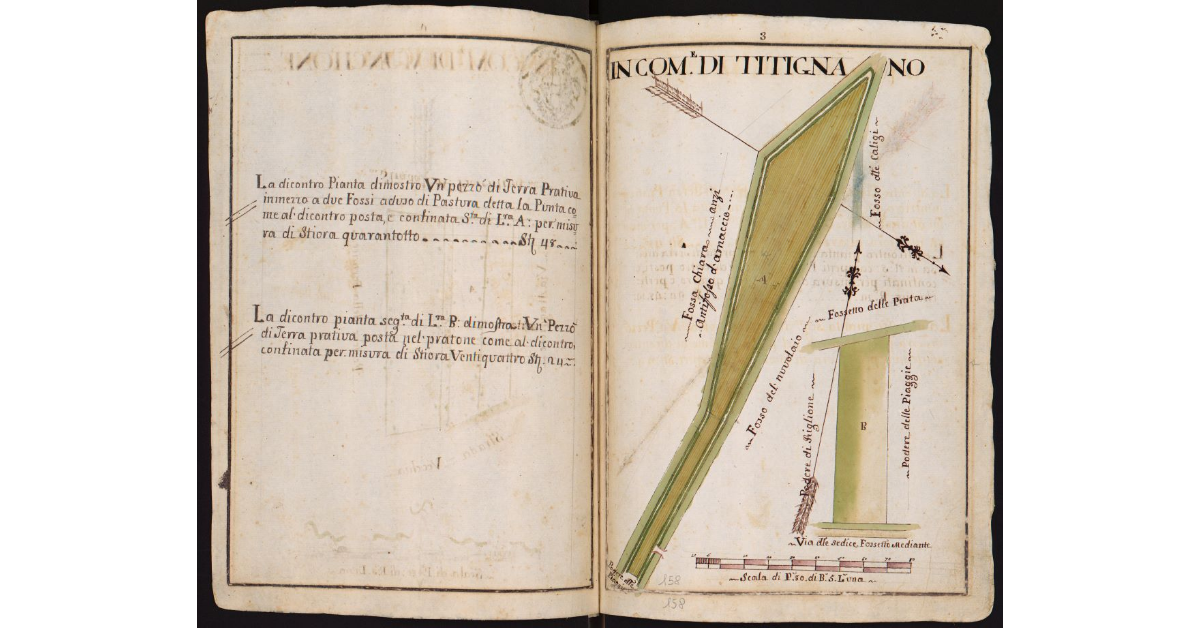 La dicontro Pianta dimostro Vn pezzo di Terra Prativa
in mezzo a due Fossi aduso di Pastura detta la Punta co
me al dicontro posta, e confinata S.ta di L.ra A: per misu
ra di Stiora quarantotto Stj 48
La dicontro pianta seg.ta di L.ra B: dimostra ti Vn Pezzo
di Terra prativa posta nel pratone come al dicontro,
confinata per misura di Stiora Ventiquattro Stj 24
3
IN COM.E DI TITIGNA NO
Fosso dle Caligi
Fossa Chiara anzi
Antifosso d'arnaccio
A
Fossetto delle Prata
Fosso del nuvolaio
Podere di Stiglione
B
Podere delle Piaggie
Via dle sedice Fossetto Mediante
Scala di P. 80. di B.a S. Luna
158
158